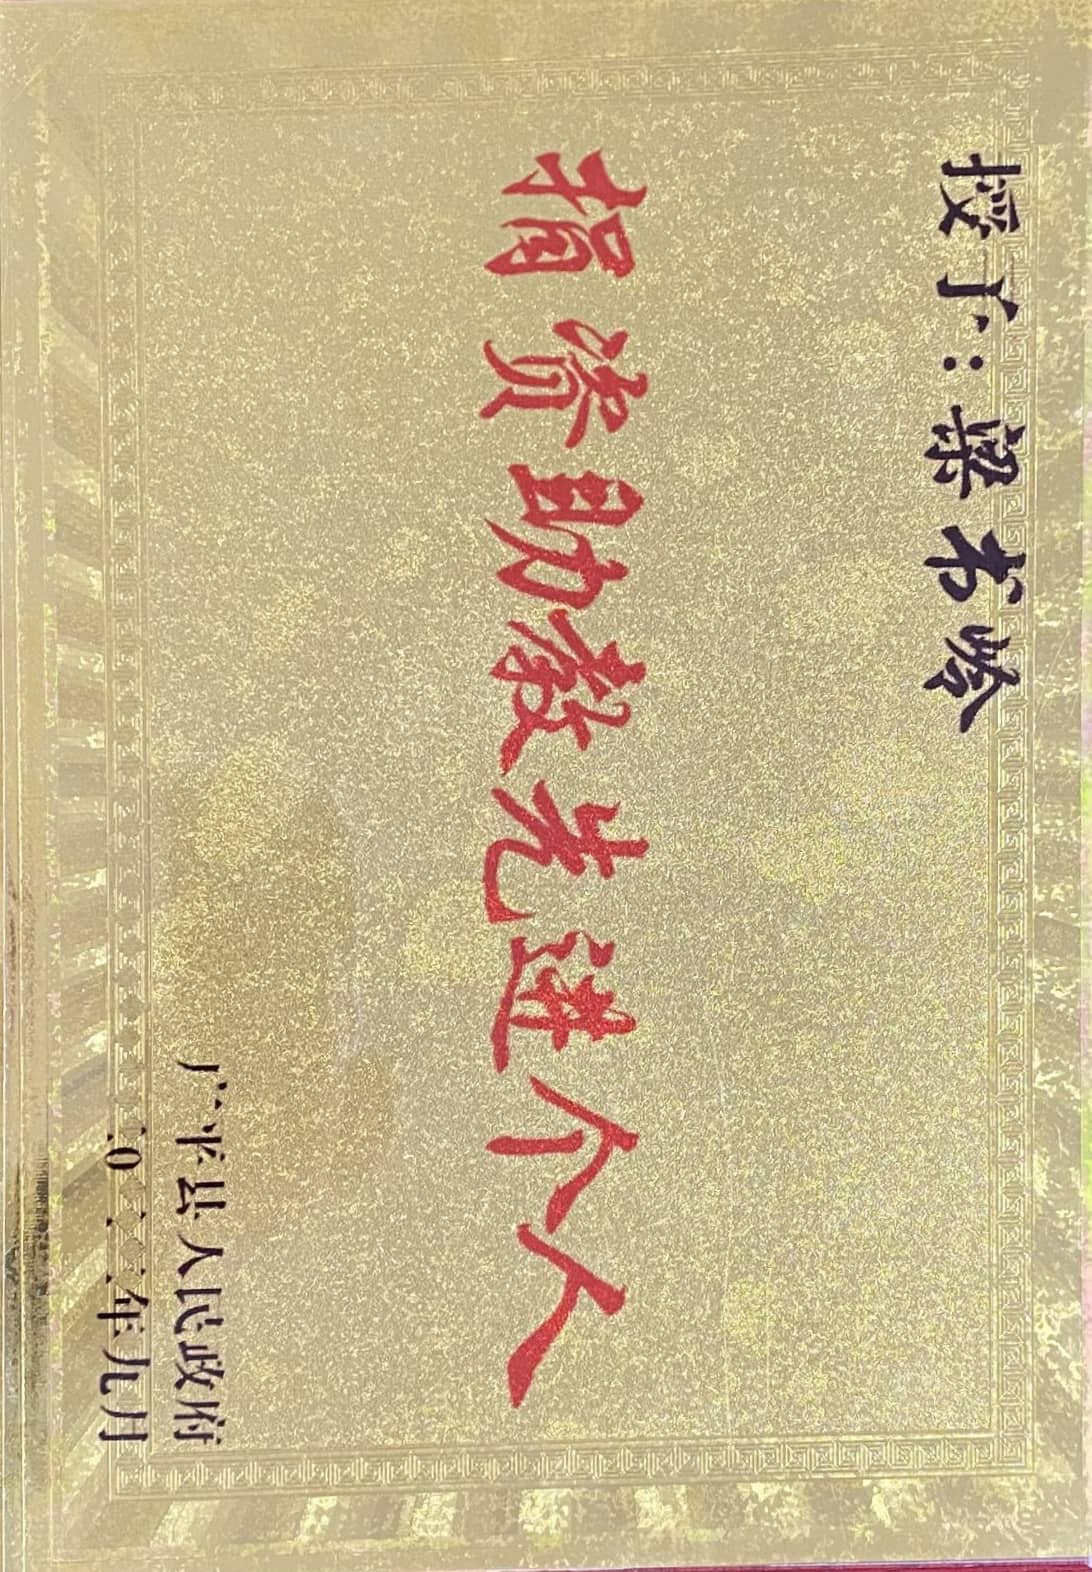 授予：梁书岭
捐资助教先进个人
广平县人民政府
年九月